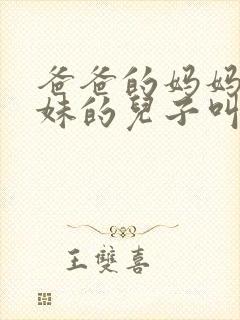 爸爸的妈妈
妹的兒子叫
王雙喜